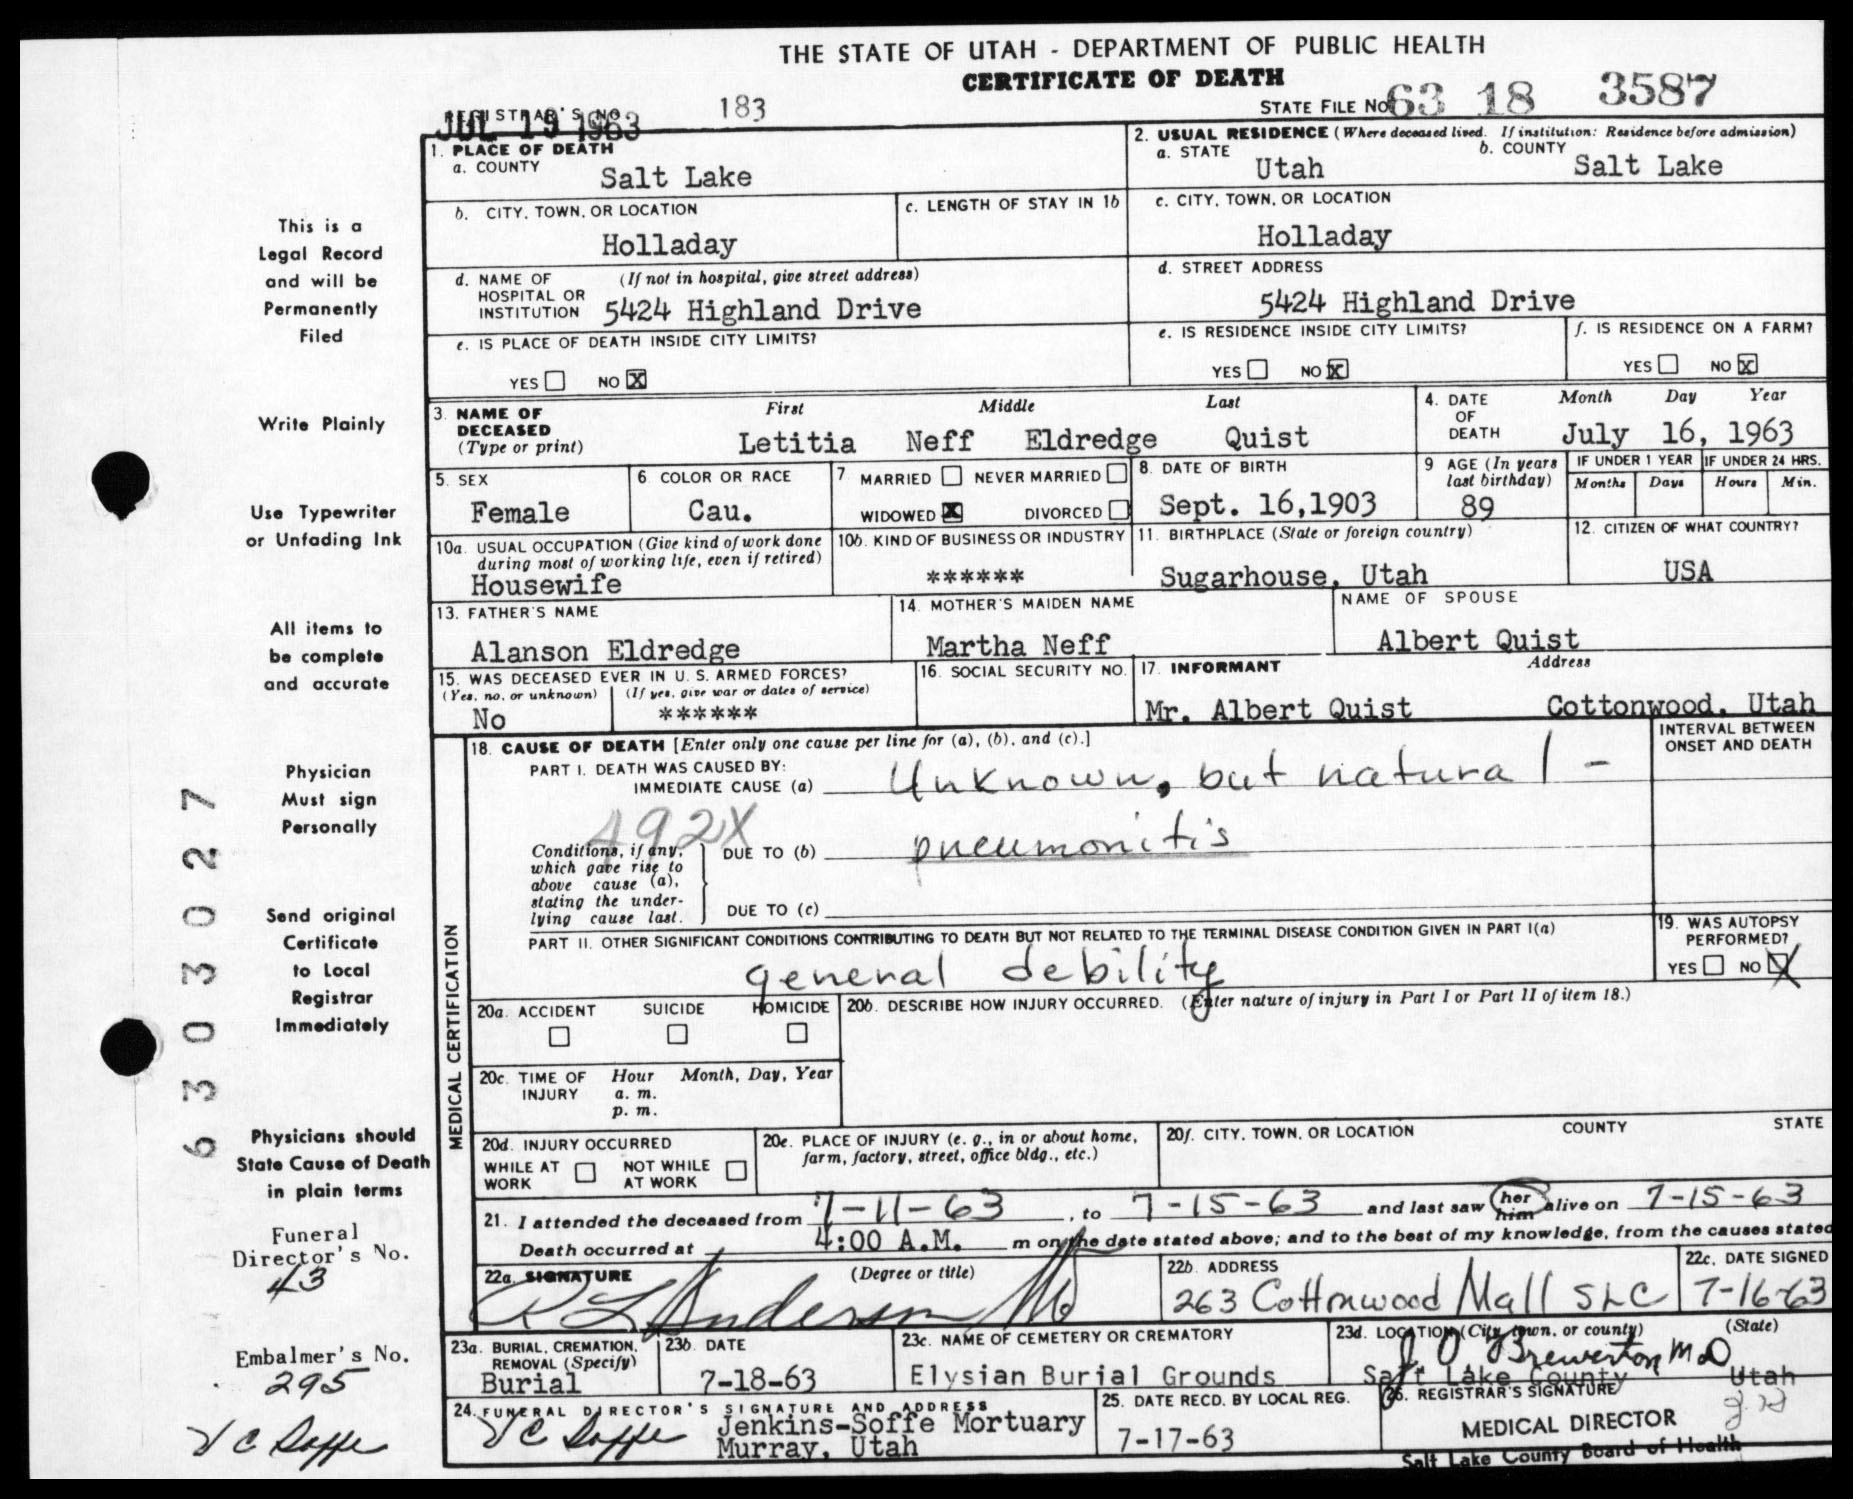 THE STATE OF UTAH - DEPARTMENT OF PUBLIC HEALTH
CERTIFICATE OF DEATH
STATE FILE NO. 63 18 3587
REGISTRAR'S NO. 183
JUL 19 1963
1. PLACE OF DEATH
a. COUNTY Salt Lake
2. USUAL RESIDENCE (Where deceased lived. If institution: Residence before admission)
a. STATE Utah b. COUNTY Salt Lake
b. CITY, TOWN, OR LOCATION Holladay
c. LENGTH OF STAY IN 1b
c. CITY, TOWN, OR LOCATION Holladay
d. NAME OF HOSPITAL OR INSTITUTION (If not in hospital, give street address) 5424 Highland Drive
d. STREET ADDRESS 5424 Highland Drive
e. IS PLACE OF DEATH INSIDE CITY LIMITS?
YES NO X
e. IS RESIDENCE INSIDE CITY LIMITS?
YES NO X
f. IS RESIDENCE ON A FARM?
YES NO X
3. NAME OF DECEASED (Type or print) First Middle Last
Letitia Neff Eldredge Quist
4. DATE OF DEATH Month Day Year
July 16, 1963
5. SEX Female
6 COLOR OR RACE Cau.
7 MARRIED NEVER MARRIED
WIDOWED X DIVORCED
8. DATE OF BIRTH Sept. 16,1903
9 AGE (In years last birthday) 89
IF UNDER 1 YEAR Months Days
IF UNDER 24 HRS. Hours Min.
10a. USUAL OCCUPATION (Give kind of work done during most of working life, even if retired)
Housewife
10b. KIND OF BUSINESS OR INDUSTRY ******
11. BIRTHPLACE (State or foreign country) Sugarhouse, Utah
12. CITIZEN OF WHAT COUNTRY? USA
13. FATHER'S NAME Alanson Eldredge
14. MOTHER'S MAIDEN NAME Martha Neff
NAME OF SPOUSE Albert Quist
15. WAS DECEASED EVER IN U. S. ARMED FORCES?
(Yes, no, or unknown) (If yes, give war or dates of service)
No ******
16. SOCIAL SECURITY NO.
17. INFORMANT Address
Mr. Albert Quist Cottonwood, Utah
MEDICAL CERTIFICATION
18. CAUSE OF DEATH [Enter only one cause per line for (a), (b), and (c).]
INTERVAL BETWEEN ONSET AND DEATH
PART I. DEATH WAS CAUSED BY:
IMMEDIATE CAUSE (a) Unknown, but natural -
492X
Conditions, if any, which gave rise to above cause (a), stating the underlying cause last.
DUE TO (b) pneumonitis
DUE TO (c)
PART II. OTHER SIGNIFICANT CONDITIONS CONTRIBUTING TO DEATH BUT NOT RELATED TO THE TERMINAL DISEASE CONDITION GIVEN IN PART I(a)
general debility
19. WAS AUTOPSY PERFORMED?
YES NO X
20a. ACCIDENT SUICIDE HOMICIDE
20b. DESCRIBE HOW INJURY OCCURRED. (Enter nature of injury in Part I or Part II of item 18.)
20c. TIME OF INJURY Hour Month, Day, Year
a. m.
p. m.
20d. INJURY OCCURRED
WHILE AT WORK NOT WHILE AT WORK
20e. PLACE OF INJURY (e. g., in or about home, farm, factory, street, office bldg., etc.)
20f. CITY, TOWN, OR LOCATION COUNTY STATE
21. I attended the deceased from 7-11-63, to 7-15-63 and last saw her him alive on 7-15-63
Death occurred at 4:00 A.M. m on the date stated above; and to the best of my knowledge, from the causes stated
22a. SIGNATURE (Degree or title)
R L Anderson MD
22b. ADDRESS
263 Cottonwood Mall SLC
22c. DATE SIGNED
7-16-63
23a. BURIAL, CREMATION, REMOVAL (Specify) Burial
23b. DATE 7-18-63
23c. NAME OF CEMETERY OR CREMATORY Elysian Burial Grounds
23d. LOCATION (City, town, or county) (State)
Salt Lake County Utah
24. FUNERAL DIRECTOR'S SIGNATURE AND ADDRESS
V C Soffe Jenkins-Soffe Mortuary
Murray, Utah
25. DATE RECD. BY LOCAL REG.
7-17-63
26. REGISTRAR'S SIGNATURE
Brewerton MD
MEDICAL DIRECTOR
Salt Lake County Board of Health
This is a
Legal Record
and will be
Permanently
Filed
Write Plainly
Use Typewriter
or Unfading Ink
All items to
be complete
and accurate
Physician
Must sign
Personally
Send original
Certificate
to Local
Registrar
Immediately
Physicians should
State Cause of Death
in plain terms
Funeral
Director's No.
43
Embalmer's No.
295
V C Soffe
6303027